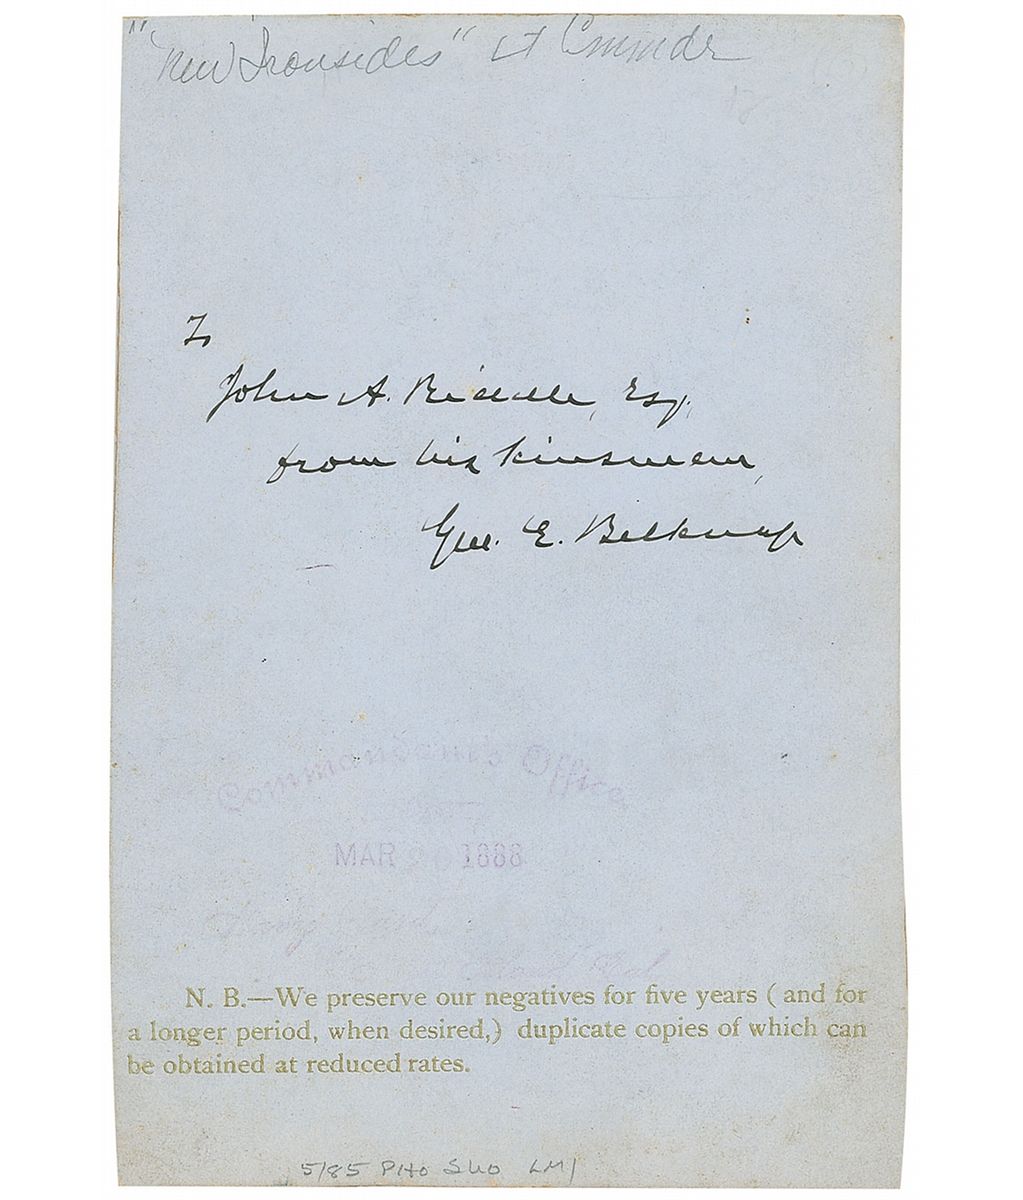 "New Ironsides" Lt Commdr
To
John A. Riddle, Esq,
from his kinsman,
Geo. E. Belknap
Commandant's Office
MAR 1888
N. B.—We preserve our negatives for five years ( and for
a longer period, when desired,) duplicate copies of which can
be obtained at reduced rates.
5/85 PHO SHO LMJ